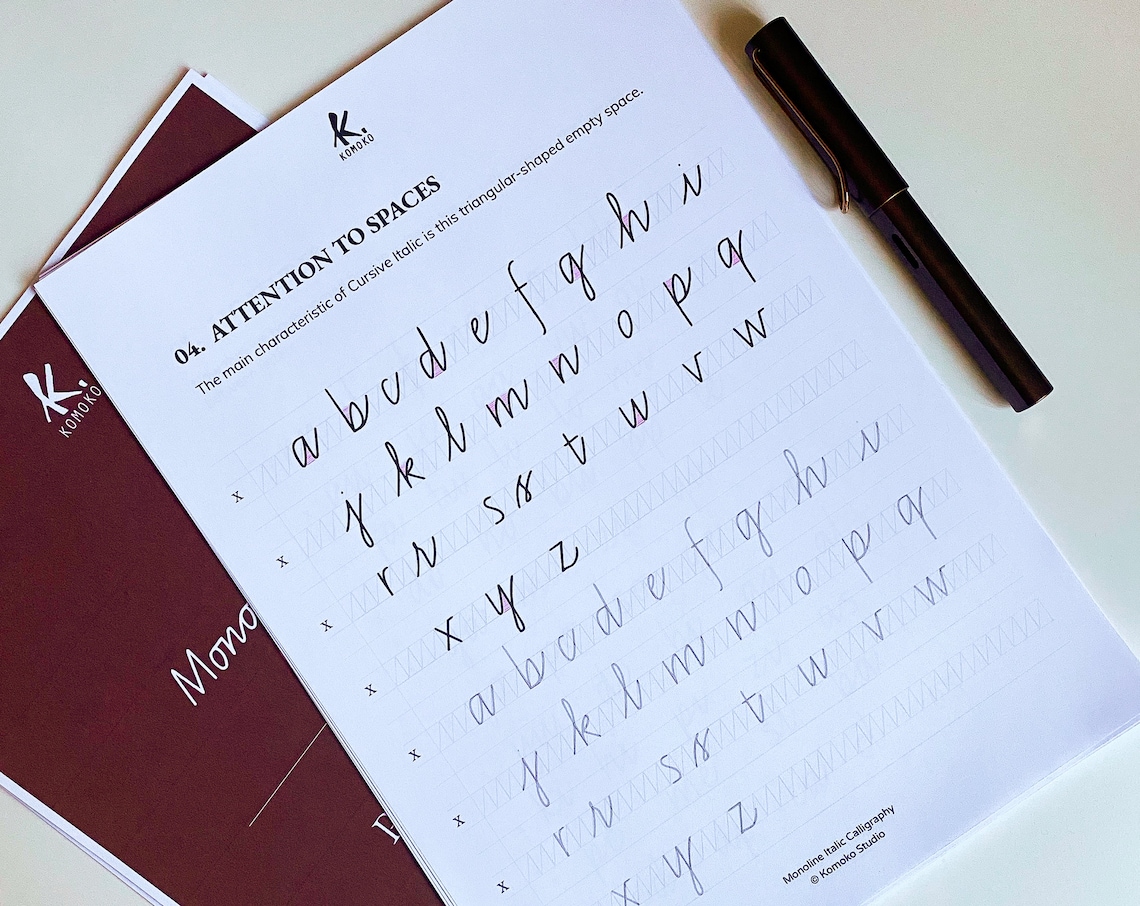 K.
KOMOKO
04. ATTENTION TO SPACES
The main characteristic of Cursive Italic is this triangular-shaped empty space.
x a b c d e f g h i
x j k l m n o p q
x r r s s t u v w
x x y z
x a b c d e f g h i
x j k l m n o p q
x r r s s t u v w
x y z
Monoline Italic Calligraphy
© Komoko Studio
K.
KOMOKO
Mono